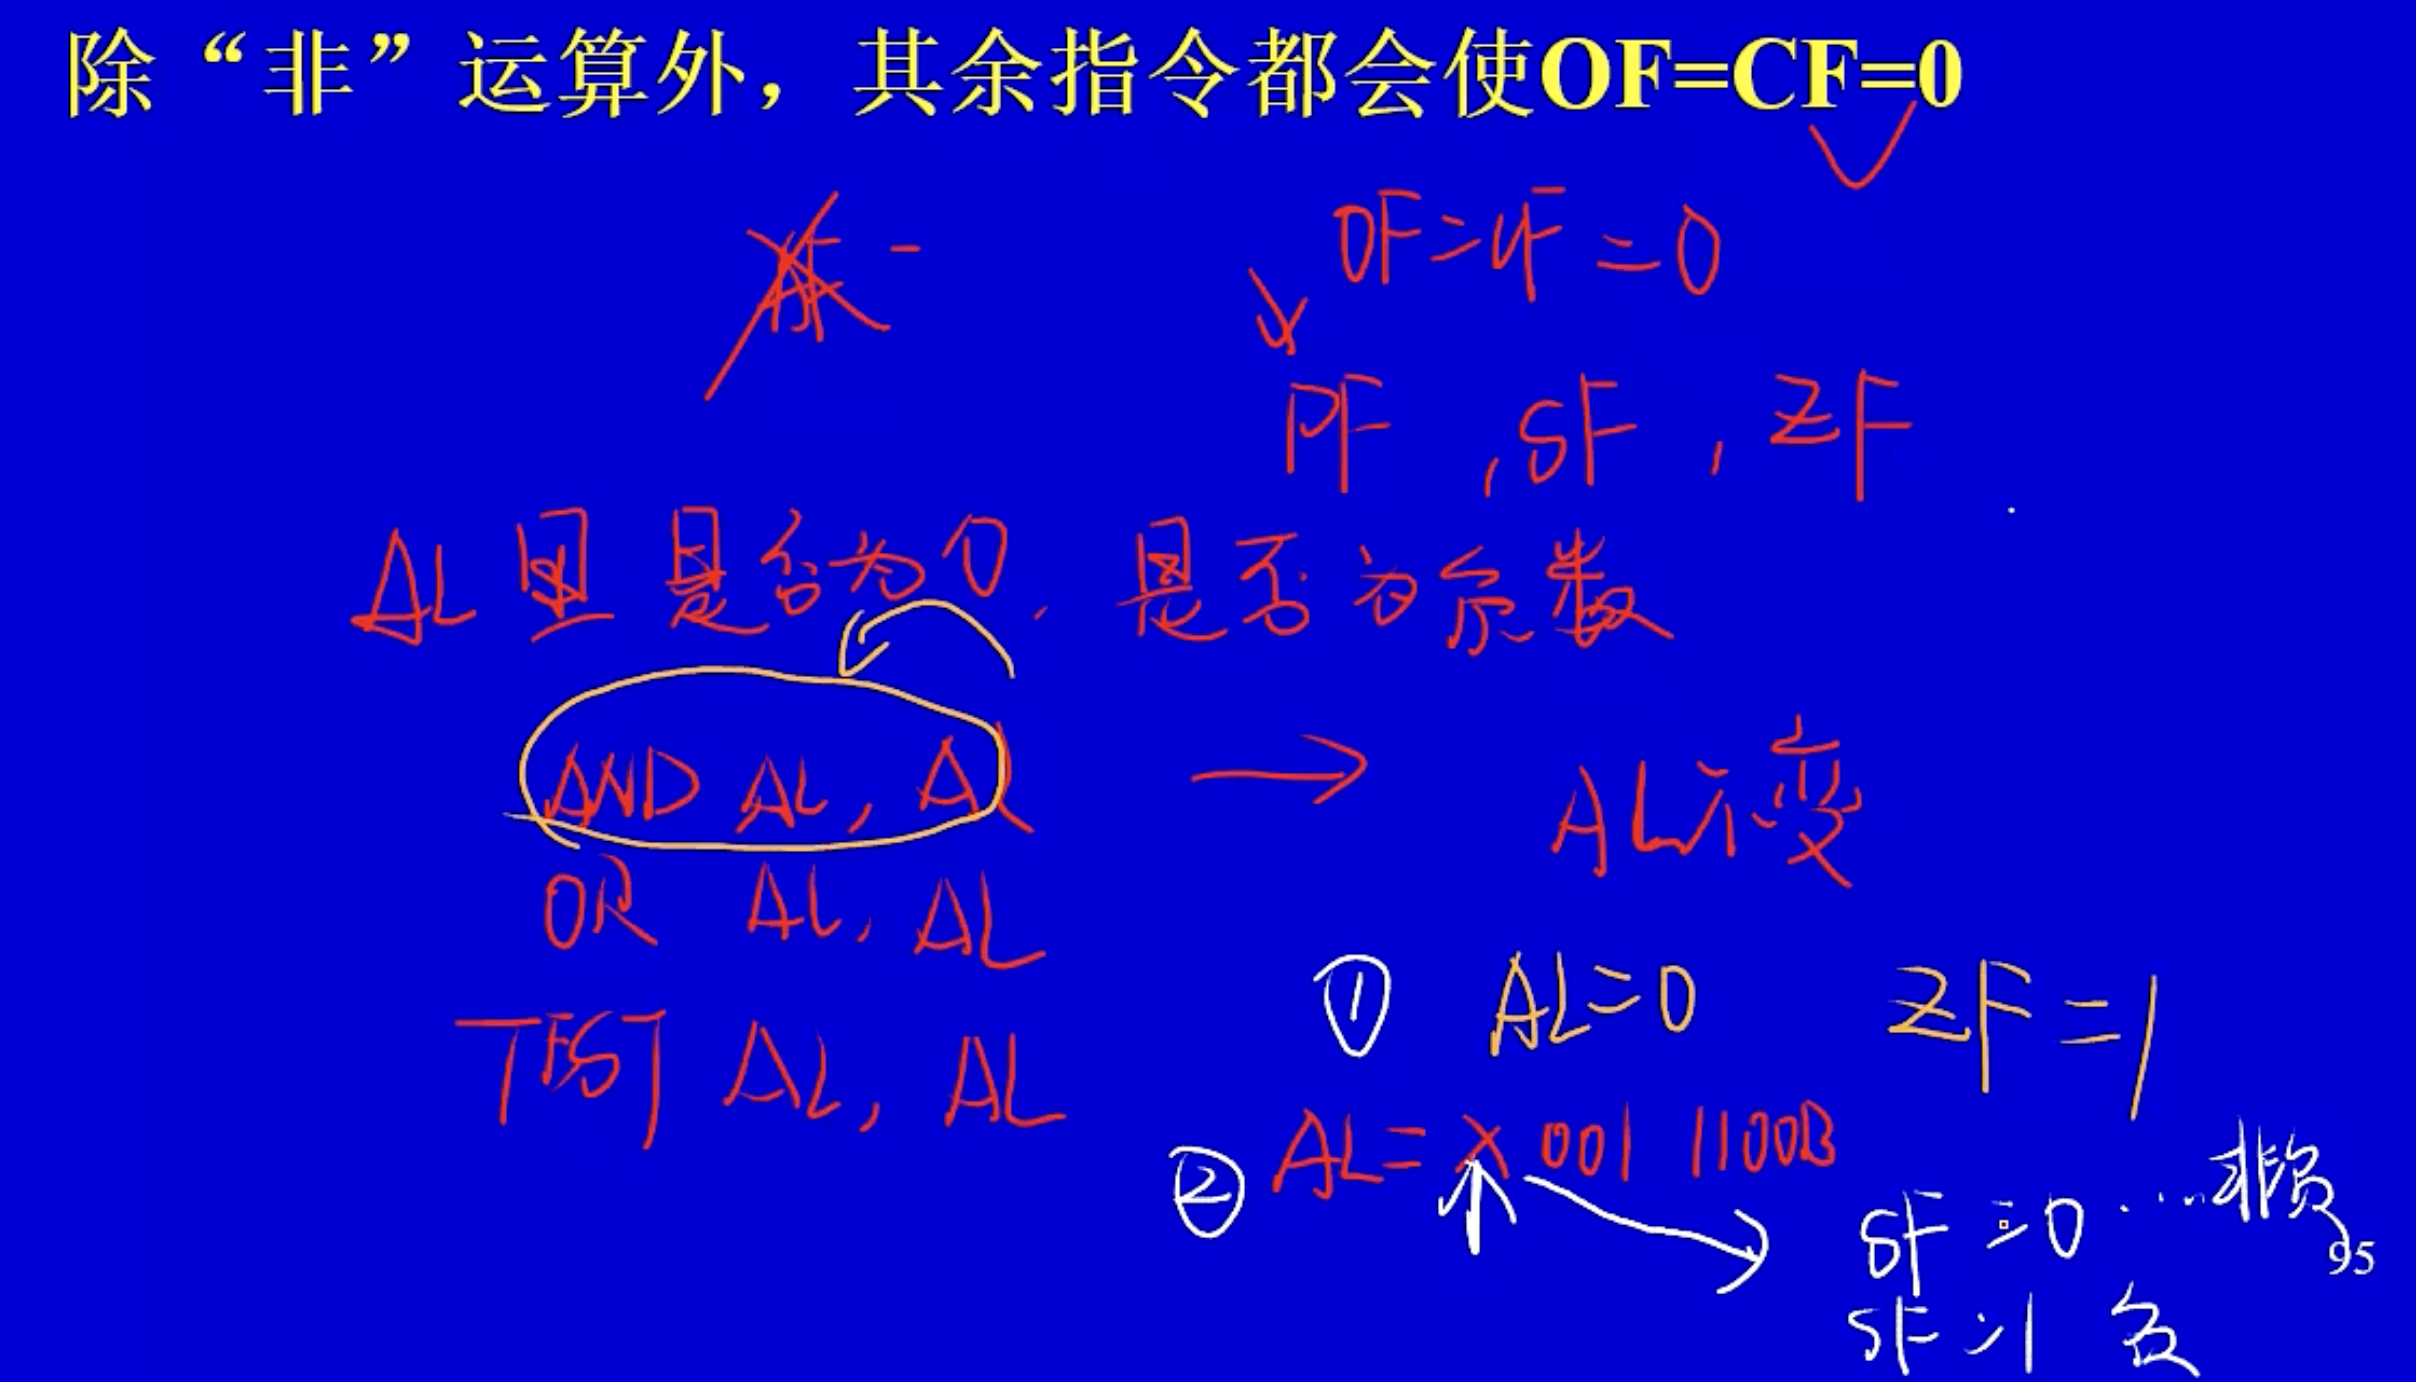 除“非”运算外，其余指令都会使OF=CF=0
OF=CF=0
PF, SF, ZF
AL里是否为0, 是否为负数
AND AL, AL → AL不变
OR AL, AL
TEST AL, AL
① AL=0 ZF=1
② AL=X001 1100B
SF=0 ... 非负
95
SF=1 负